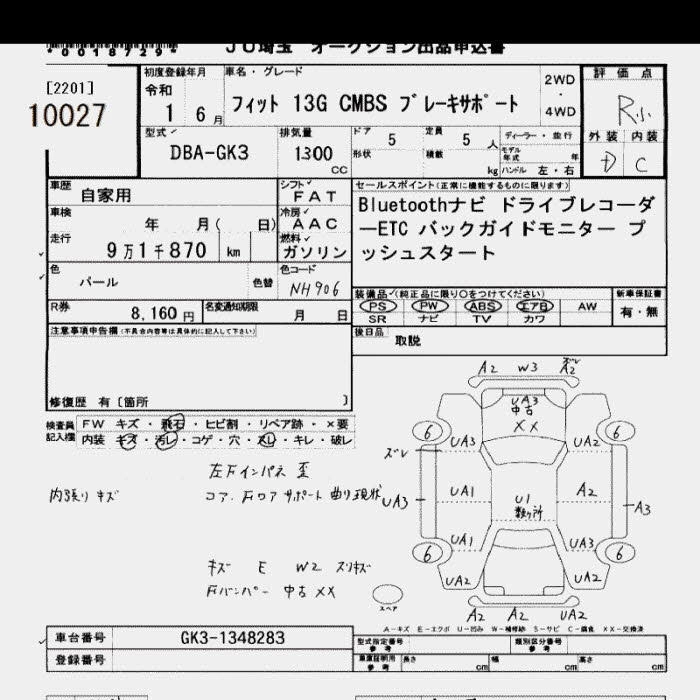 *0018729*
JU埼玉 オークション出品申込書
[2201]
10027
初度登録年月
令和
1 6月
車名・グレード
フィット 13G CMBS ブレーキサポート
2WD
・
4WD
評価点
R小
外装 内装
D C
型式
DBA-GK3
排気量
1300
CC
ドア 5
定員 5 人
形状
積載 kg
ディーラー・並行
モデル年式 年
ハンドル 左・右
車歴
自家用
シフト
FAT
車検
年 月( 日)
冷房
AAC
走行
9万1千870 km
燃料
ガソリン
色
パール
色替
色コード
NH906
セールスポイント(正常に機能するものに限ります)
Bluetoothナビ ドライブレコーダ
ーETC バックガイドモニター プ
ッシュスタート
R券
8,160円
名変通知期限
月 日
装備品(純正品に限り○をつけてください)
PS PW ABS エアB AW
SR ナビ TV カワ
新車保証書
有・無
後日品
取説
注意事項申告欄(不具合内容等は具体的に記入して下さい)
修復歴 有〔箇所 〕
検査員記入欄
FW キズ・飛石・ヒビ割・リペア跡・×要
内装 キズ・汚レ・コゲ・穴・スレ・キレ・破レ
内張り キズ
左Fインパネ 歪
コア、Fロアサポート 曲り現状
キズ E W2 スリキズ
Fバンパー 中古 XX
A2 W3 ズレ A2
UA3
中古
XX
6 6
ズレ
UA3 UA2
UA3 UA1 U1 数ヶ所 A2 A3
UA1 UA3
6 6
UA2 UA2
スペア
A2 A2 UA2
A-キズ E-エクボ U-凹み W-補修跡 S-サビ C-腐食 XX-交換済
車台番号 GK3-1348283
登録番号
型式指定番号
参考
類別区分番号
参考
車庫証明用
参考
長さ cm 幅 cm 高さ cm